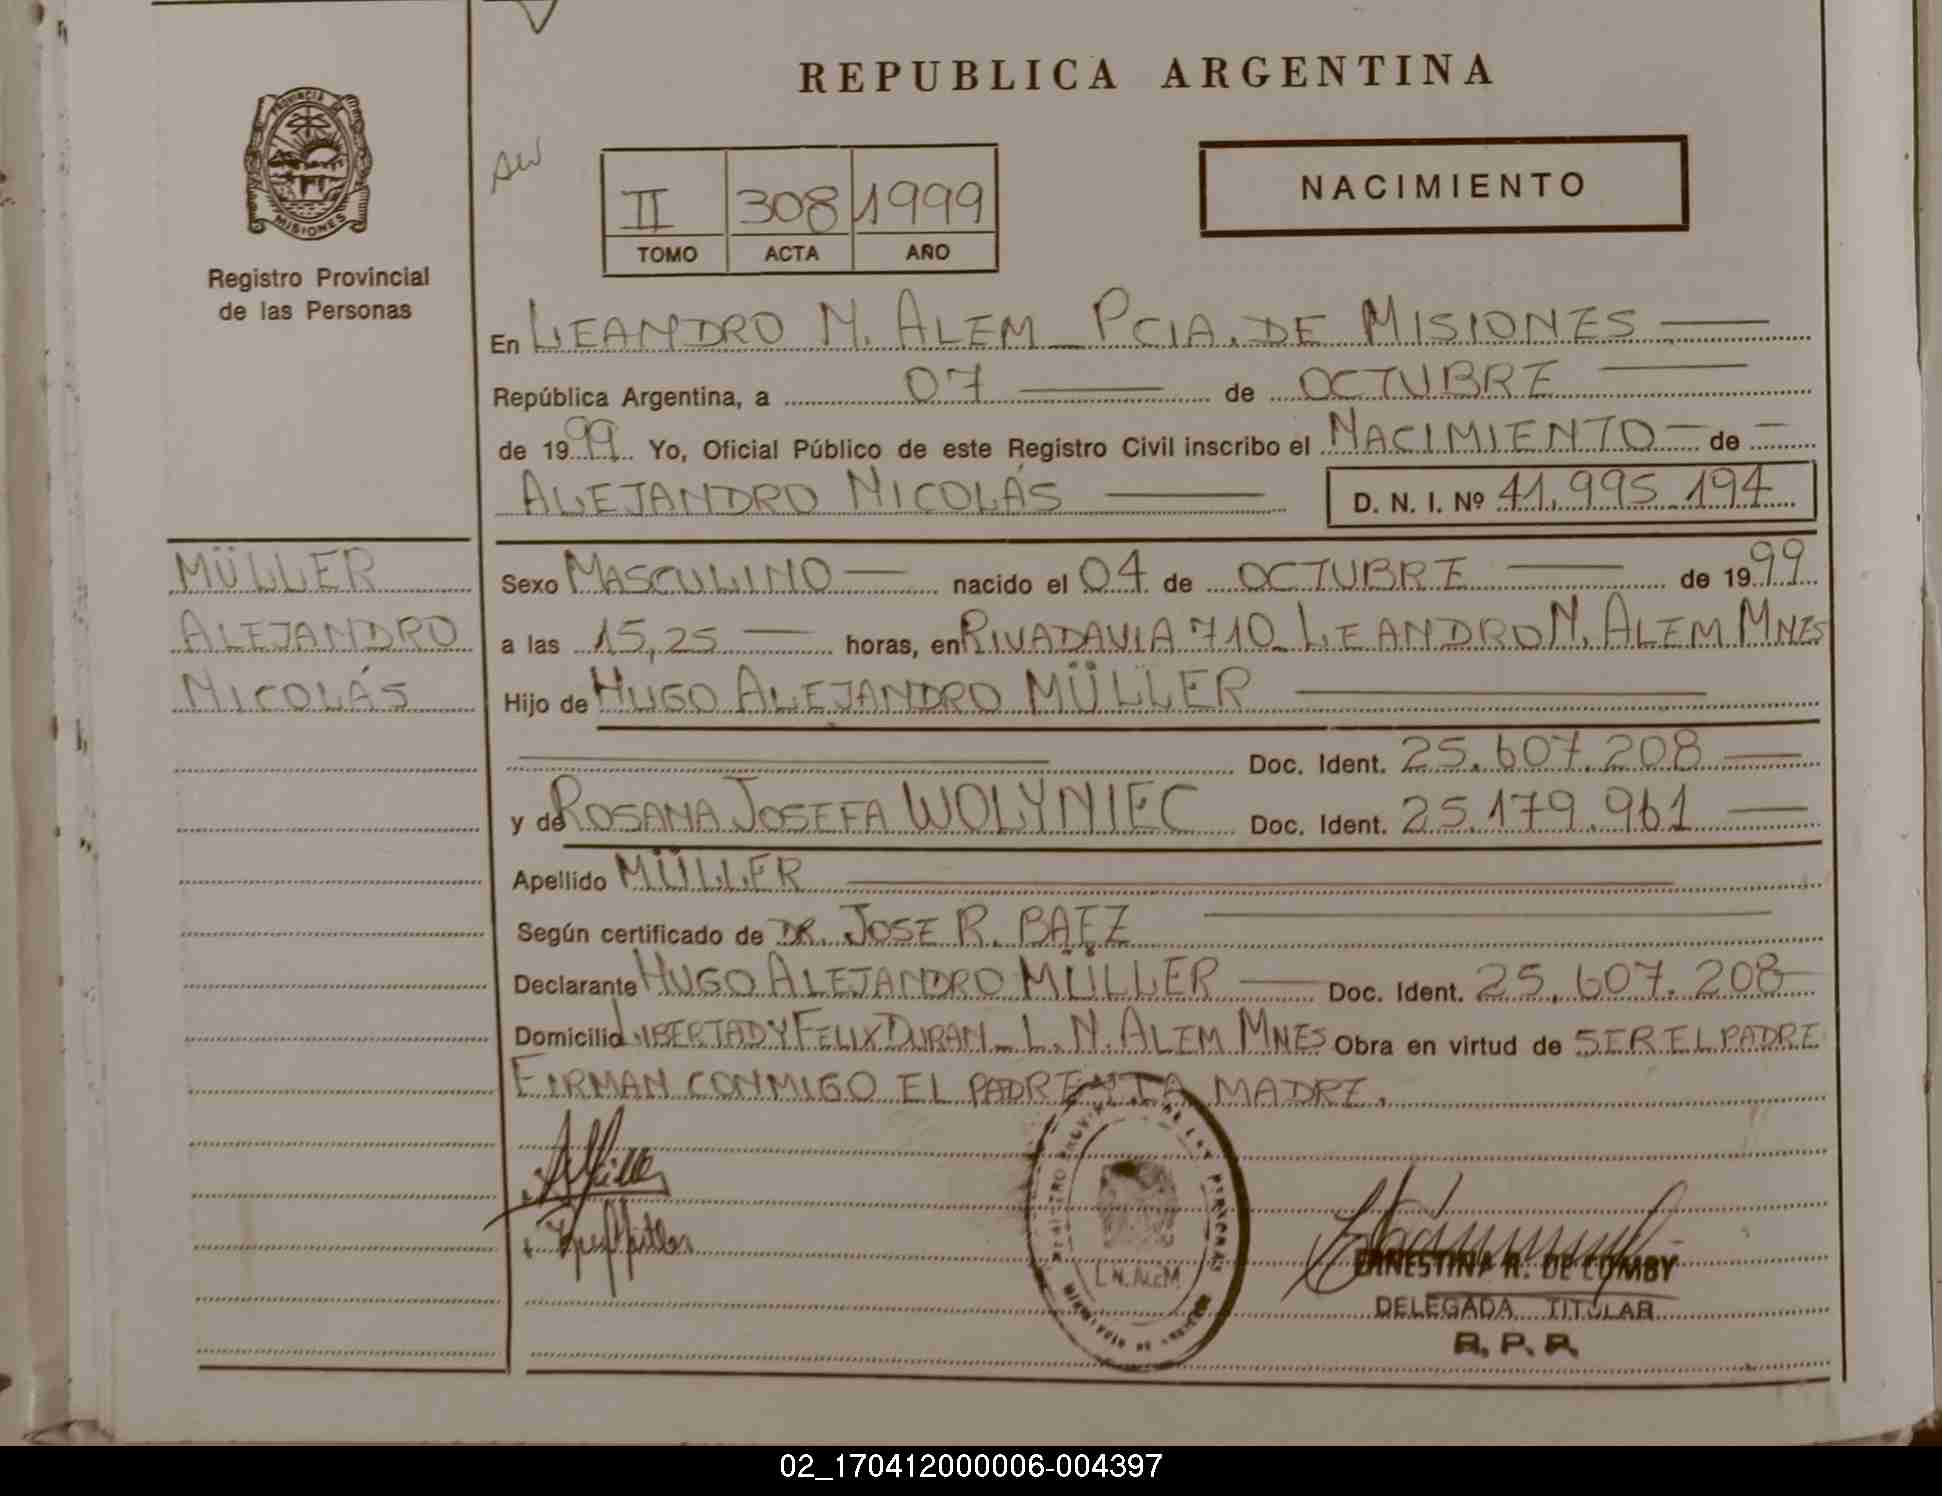 REPUBLICA ARGENTINA
PROVINCIA DE
MISIONES
Registro Provincial
de las Personas
II 308 1999
TOMO ACTA AÑO
NACIMIENTO
En LEANDRO N. ALEM _ PCIA. DE MISIONES
República Argentina, a 07 de OCTUBRE
de 1999 Yo, Oficial Público de este Registro Civil inscribo el NACIMIENTO de
ALEJANDRO NICOLÁS D. N. I. Nº 41.995.194
MÜLLER
ALEJANDRO
NICOLÁS
Sexo MASCULINO nacido el 04 de OCTUBRE de 1999
a las 15,25 horas, en RIVADAVIA 710_ LEANDRO N. ALEM MNES
Hijo de HUGO ALEJANDRO MÜLLER
Doc. Ident. 25.607.208
y de ROSANA JOSEFA WOLYNIEC Doc. Ident. 25.179.961
Apellido MÜLLER
Según certificado de DR. JOSE R. BAEZ
Declarante HUGO ALEJANDRO MÜLLER Doc. Ident. 25.607.208
Domicilio LIBERTAD Y FELIX DURAN_ L. N. ALEM MNES Obra en virtud de SER EL PADRE
FIRMAN CONMIGO EL PADRE Y LA MADRE.
L.N. ALEM
ERNESTINA R. DE COMBY
DELEGADA TITULAR
R. P. P.
02_170412000006-004397